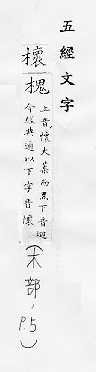 五經文字
櫰
槐
上音懷大葉而黑下音迴
今經典通以下字音懷
(木部, P.5)